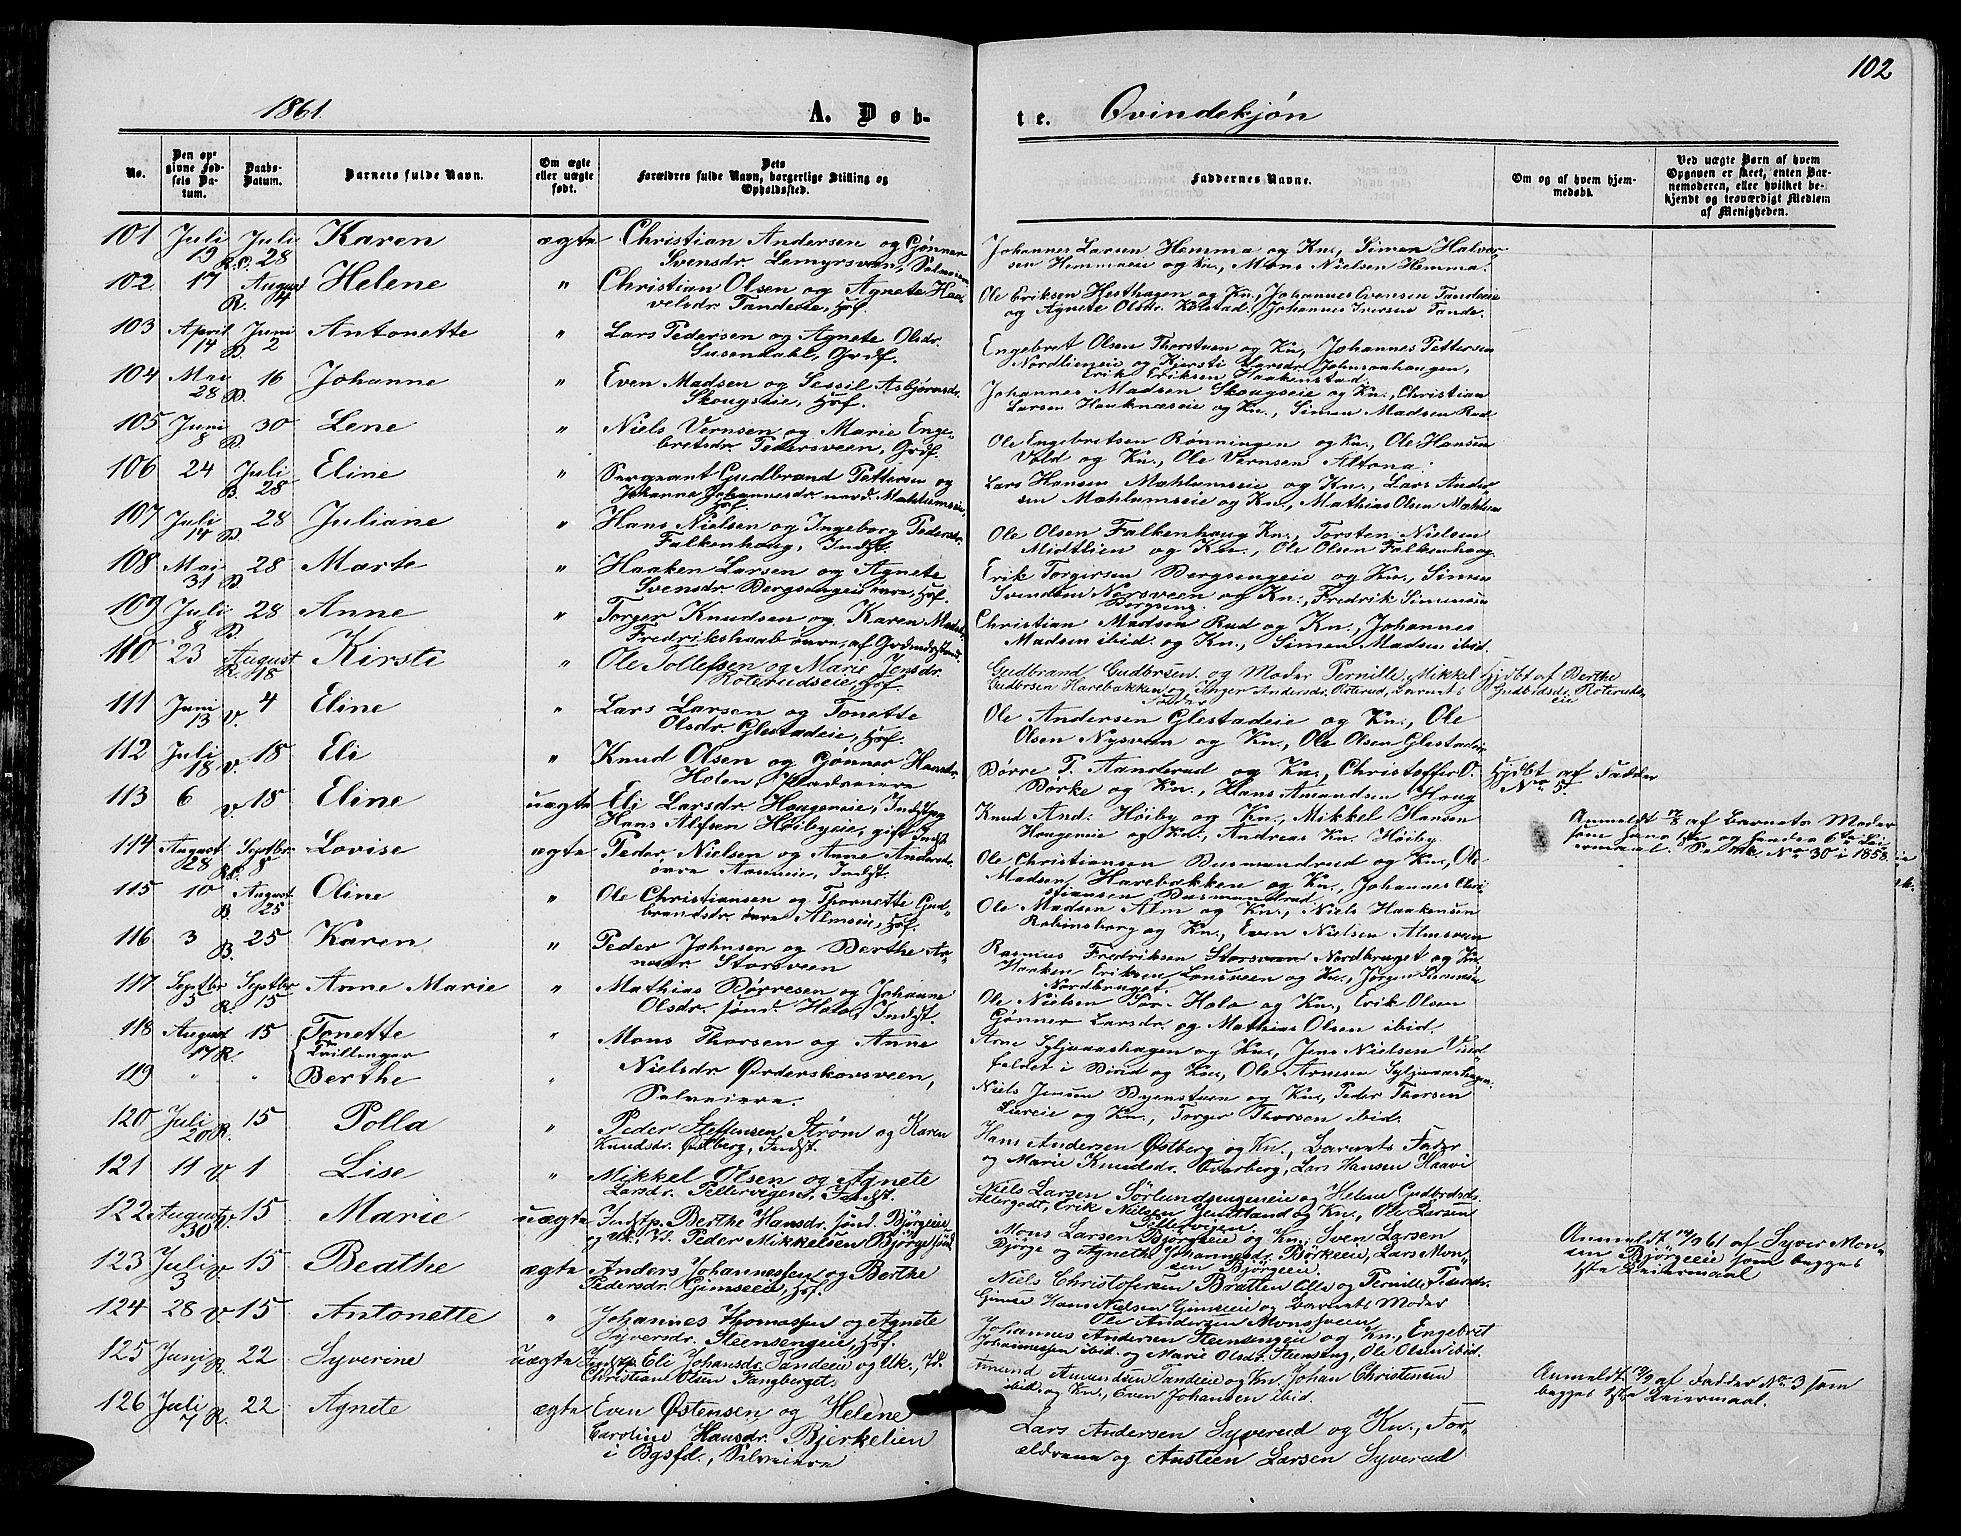 102
1861. A. Døb-
te. Qvindekjøn
No.
Den op-
givne Fød-
sels Da-
tum.
Daabs-
Datum.
Barnets fulde Navn.
Om ægte
eller uægte
født.
Dets
Forældres fulde Navn, borgerlige Stilling og
Opholdssted.
Faddernes Navne.
Om og af hvem hjem-
medøbt.
Ved uægte Børn af hvem
Opgaven er skeet, enten Bar-
nemoderen, eller hvilket be-
kjendt og troværdigt Medlem
af Menigheden.
101 Juli 19 Juli 28 Karen ægte Christian Andersen og Gønner
Svensdr. Lemyrsven, Selveiere
Johannes Larsen Hemma og Kn., Simen Halvor-
sen Hemmaeie og Kn., Mons Nielsen Hemma.
102 17 August 4 R. Helene " Christian Olsen og Agnete Haa-
velsdr. Tandeeie, Hsf.
Ole Eriksen Hesthagen og Kn., Johannes Evensen Tandeeie
og Agnete Olsdr. Kolstad. Johannes Iversen Tande.
103 April 14 Juni 2 Antonette " Lars Pedersen og Agnete Olsdr.
Susendahl, Grdf.
Engebret Olsen Thorstuen og Kn., Johannes Pettersen
Nordlieneie og Kjersti Larsdr. Johnsonhaugen,
Erik Eriksen Haakenstad.
104 Mai 28 16 Johanne " Even Madsen og Sessil Asbjørnsdr.
Skougseie, Hsf.
Johannes Madsen Skougseie og Kn., Christian
Larsen Houknæseie og Kn., Simen Madsen Rud
105 Juni 8 30 Lene " Niels Vernsen og Marie Enge-
bretsdr. Pedersveen, Grdf.
Ole Engebretsen Rønningen og Kn., Ole Hansen
Vold og Kn., Ole Vernsen Altona.
106 24 Juli 28 B. Eline " Sergeant Gudbrand Pettersen og
Johanne Johannesdr. nord. Mæhlumseie,
Hsf.
Lars Hansen Mæhlumseie og Kn., Lars Ander-
sen Mæhlumseie og Kn., Mathias Olsen Mæhlum
107 Juli 14 28 Juliane " Hans Nielsen og Ingeborg Pedersdr.
Falkenhoug, Indst.
Ole Olsen Falkenhoug Kn., Torsten Nielsen
Midtlien og Kn., Ole Olsen Falkenhoug
108 Mai 31 28 Marte " Haaken Larsen og Agnete
Svensdr. Bergsengeie øvre, Hsf.
Erik Torgersen Bergsengeie og Kn., Simen
Svendsen Norsveen og Kn., Fredrik Simensen
Bergseng.
109 Juli 8 28 Anne " Torger Knudsen og Karen Madsdr.
Fredrikshaab øvre, af Grdmdstand.
Christian Madsen Rud og Kn., Johannes
Madsen ibid. og Kn., Simen Madsen ibid.
110 23 August 18 R. Kirsti " Ole Tollefsen og Marie Jensdr.
Roterudseie, Hsf
Gudbrand Gudbrsen. og Moder Pernille. Mikkel
Gudbrsen Harebakken og Inger Andersdr. Roterud, Barnets
Fader
Hjdbt af Berthe
Gudbrdsdr. Roteruds-
eie
111 Juni 13 V. 4 Eline " Lars Larsen og Tonette
Olsdr. Glestadeie, Hsf.
Ole Andersen Glestadeie og Kn., Ole
Olsen Nysveen og Kn., Ole Olsen Glestadeie
112 Juli 18 V. 18 Eli " Knud Olsen og Gønner Hansdr.
Holen, Pladseiere
Børre P. Aanderud og Kn., Christoffer O.
Borke og Kn., Hans Amundsen Houg
Hjdbt af Fadder
No 5.
113 6 V. 18 Eline uægte Eli Larsdr. Hougeneie, Indstpg
Hans Alfsen Høibyeie, gift Indst
Knud And: Høiby og Kn., Mikkel Hansen
Hougeneie og Kn., Andreas Kn. Høiby.
Anmeldt 17/8 af Barnets Moder
som hans 1ste og hendes 6te Lei-
ermaal. Se No 30 i 1858
114 August 28 Septbr 8 Lovise ægte Peder Nielsen og Anne Andersdr.
øvre Aasneie, Indst.
Ole Christiansen Busmandrud og Kn., Ole
Madsen Harebakken og Kn., Johannes Chri-
stiansen Busmandrud.
115 10 August 25 B. Oline " Ole Christiansen og Thornette Gud-
brandsdr. øvre Almseie, Hsf.
Ole Madsen Alm og Kn., Niels Haakensen
Robinsborg og Kn., Even Nielsen Almsveen
116 3 B. 25 Karen " Peder Johnsen og Berthe Ar-
nesdr. Storsveen
Rasmus Fredriksen Storsveen Nordbruget og Kn.
Haaken Eriksen Lonsveen og Kn., Jørgen Simensen
Nordbruget.
117 Septbr 5 Septbr 15 R. Anne Marie " Mathias Børresen og Johanne
Olsdr. sønd. Holo, Indst.
Ole Nielsen Sør-Holo og Kn., Erik Olsen
Gønner Larsdr. og Mathias Olsen ibid.
118 August 17 R. 15 Tonette " Mons Thorsen og Anne
Tvillinger
Arne Syljuaashagen og Kn., Jens Nielsen Vind-
faldet i Birid og Kn., Ole Arnesen Syljuaashagen
119 " " Berthe " Nielsdr Ørderskovsveen,
Selveiere.
Niels Jensen Byenstuen og Kn., Peder Thorsen
Lureie og Kn., Torger Thorsen ibid.
120 Juli 20 R. 15 Polla " Peder Steffensen Strøm og Karen
Knudsdr. Østberg, Indst.
Hans Andersen Østberg og Kn., Barnets Fader
og Marie Knudsdr. Overberg, Lars Hansen Haavi
121 11 V. 1 Lise " Mikkel Olsen og Agnete
Larsdr. Pellervigen, Indst.
Niels Larsen Sørlundsengeneie og Helene Gudbrdsdr.
Adlergodt, Erik Nielsen Jentland og Kn., Ole Larsen
Pellervigen.
122 August 30 V. 15 Marie uægte Indstp. Berthe Hansdr. sønd. Bjørgeeie
og Uk. Id. Peder Mikkelsen Bjørge sønd.
Mons Larsen Bjørgeeie og Kn., Sven Larsen
Bjørge og Agnethe Johannesdr. Børkeeie, Lars Mon-
sen Bjørgeeie.
Anmeldt 14/9 61 af Syver Mon-
sen Bjørgeeie som begges
1ste Leiermaal
123 Juli 3 V. 15 Beathe ægte Anders Johannessen og Berthe
Pedersdr. Gimseeie, Hsf.
Niels Christofersen Bratten lille og Pernille Pedersdr.
Gimse Hans Nielsen Gimseeie og Barnets Moder
Ole Andersen Monssveen
124 28 V. 15 Antonette " Johannes Thomassen og Agnete
Syversdr. Steensengeie, Hsf.
Johannes Andersen Steensengeie og Kn., Engebret
Johannessen ibid. og Marie Olsdr. Steenseng, Ole Olsen ibid.
125 Juni R. 22 Syverine uægte Indstp. Eli Johansdr. Tandeeie og Uk., Id.
Christian Olsen Fangberget.
Amund Amundsen Tandeeie og Kn. Johan Christensen
ibid. og Kn., Even Johansen ibid.
Anmeldt 19/9 af Fadder No 3 som
begges 1ste Leiermaal.
126 Juli 7 R. 22 Agnete ægte Even Østensen og Helene
Caroline Hansdr. Bjerkelien
i Bgsfd., Selveiere
Lars Andersen Syverud og Kn., For-
ældrene og Austeen Larsen Syverud